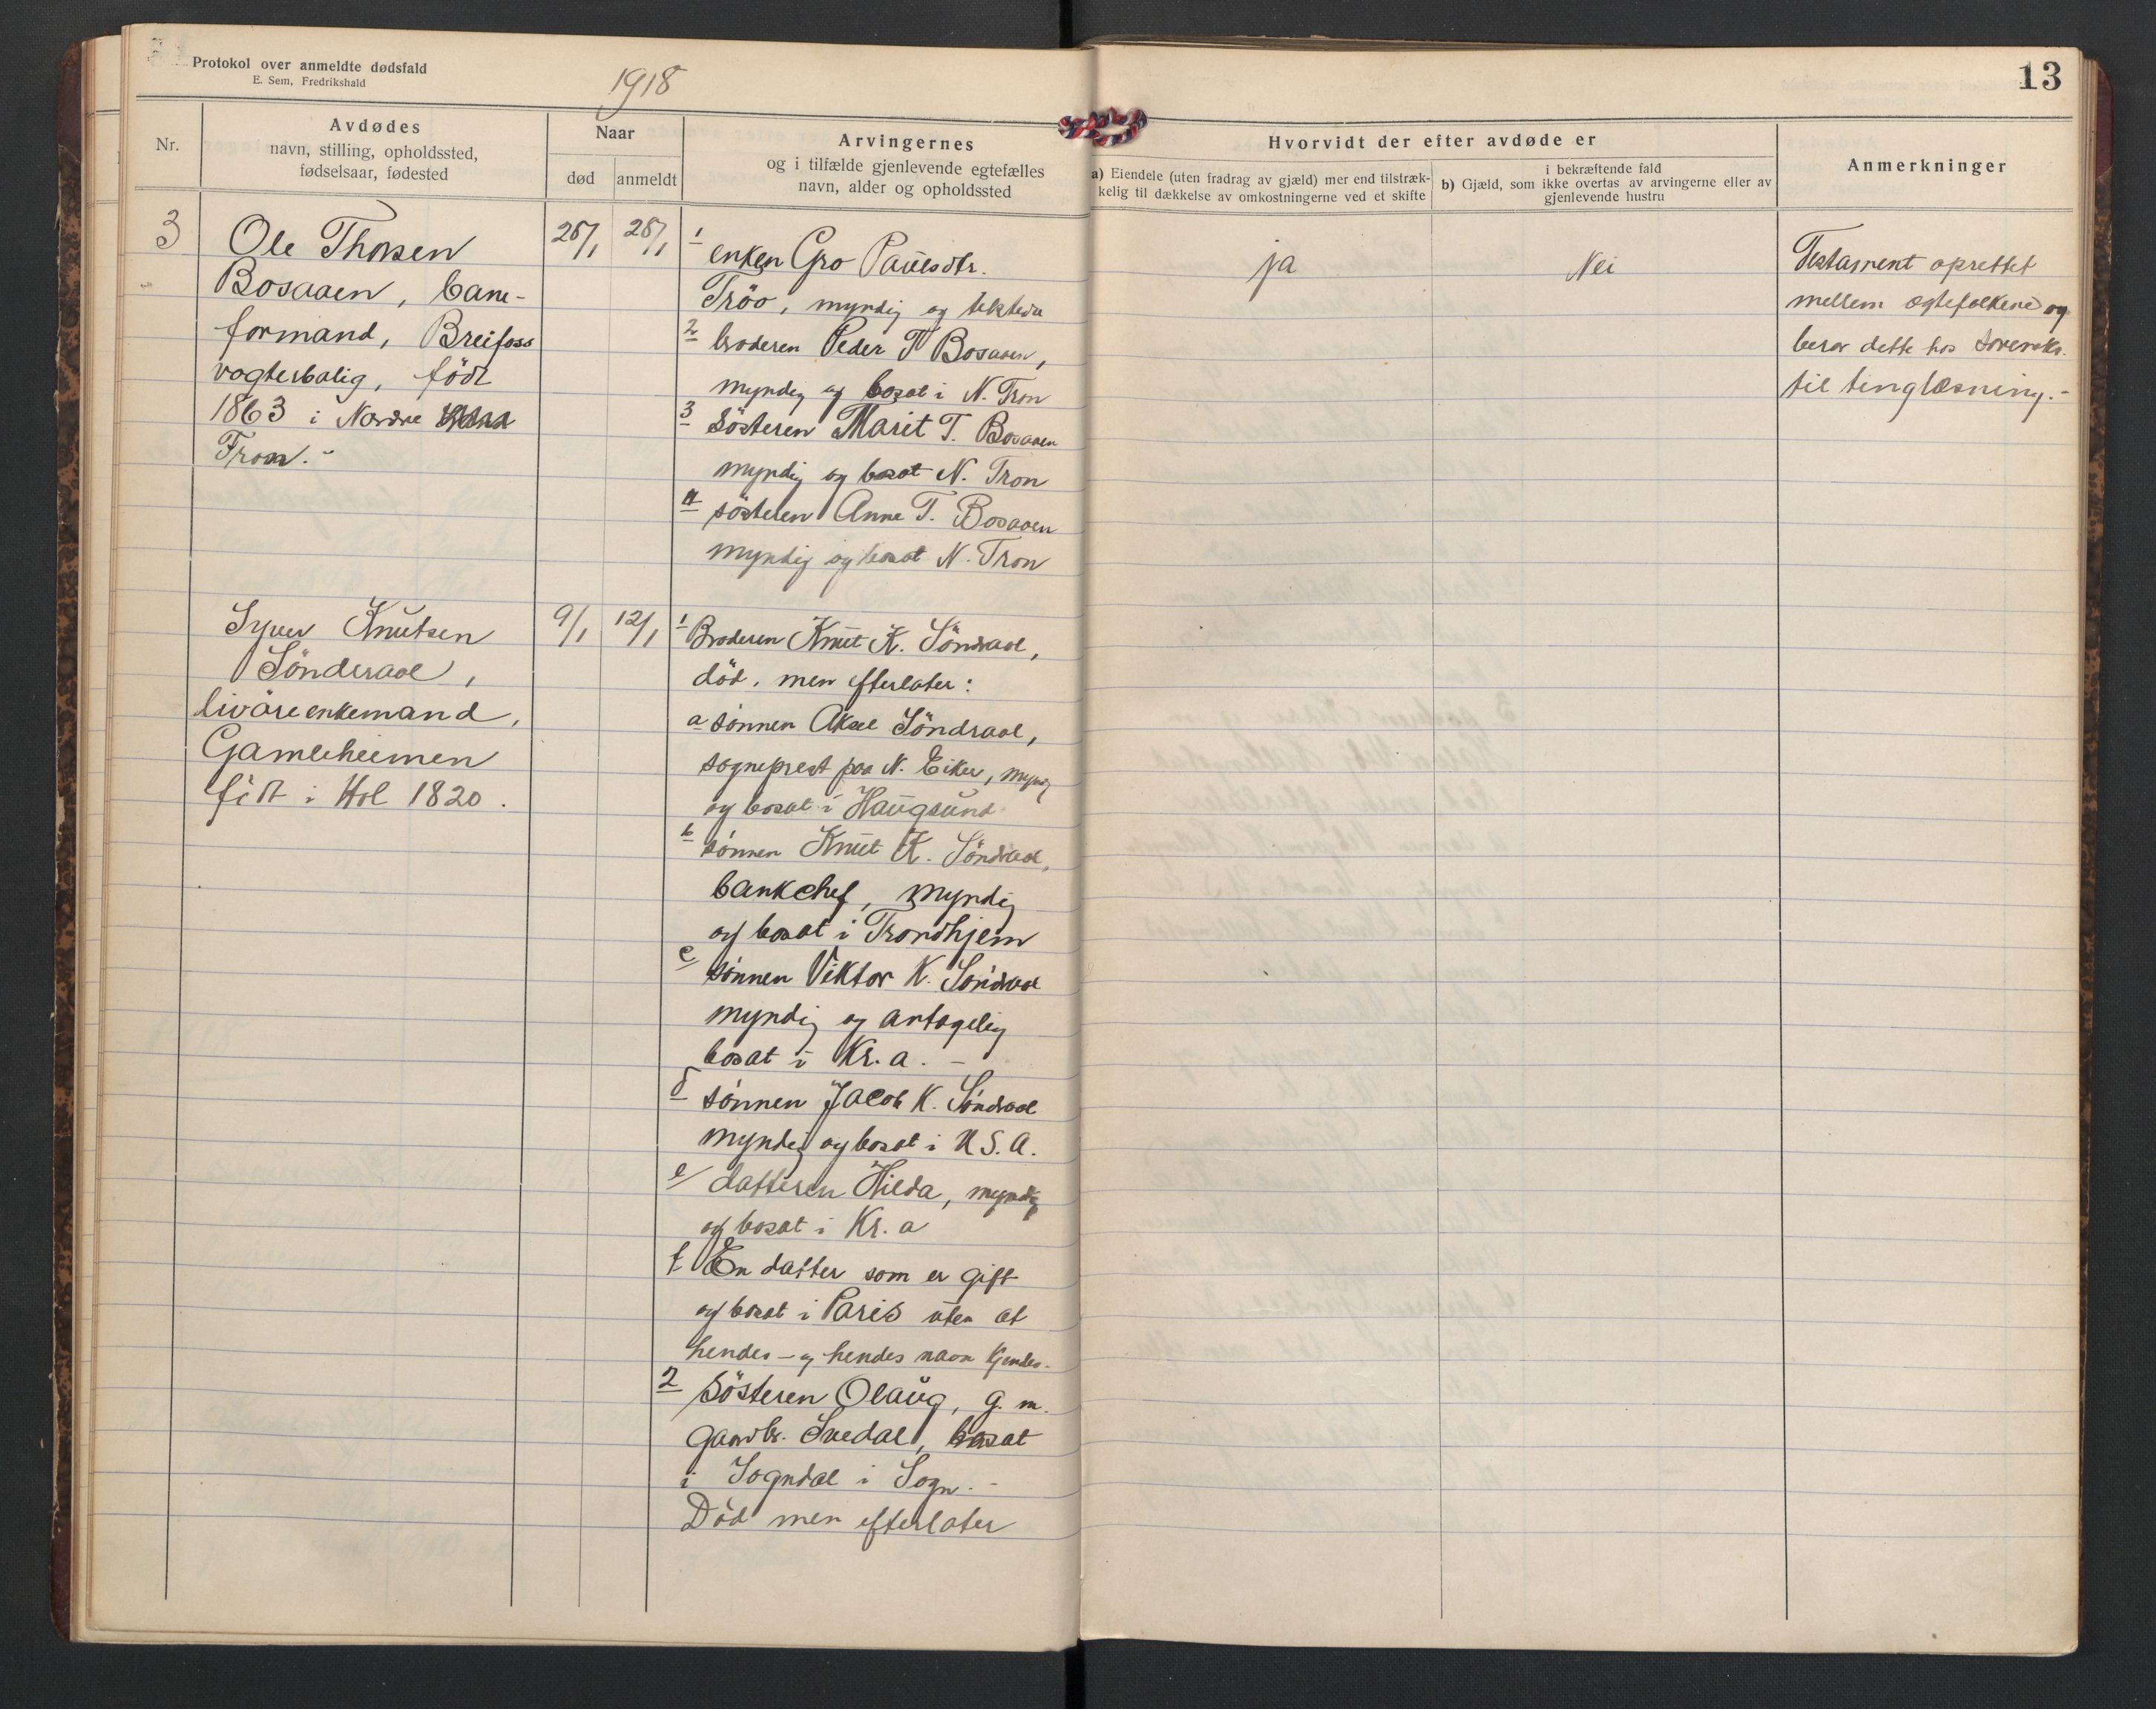 Protokol over anmeldte dødsfald
E. Sem, Fredrikshald
1918
13
Nr.
Avdødes
navn, stilling, opholdssted,
fødselsaar, fødested
Naar
død
anmeldt
Arvingernes
og i tilfælde gjenlevende egtefælles
navn, alder og opholdssted
Hvorvidt der efter avdøde er
a) Eiendele (uten fradrag av gjæld) mer end tilstræk-
kelig til dækkelse av omkostningerne ved et skifte
i bekræftende fald
b) Gjæld, som ikke overtas av arvingerne eller av
gjenlevende hustru
Anmerkninger
3
Ole Thorsen
Bosaaen, bane-
formand, Breifoss
vogterbolig, födt
1863 i Nordre
Fron.-
25/1
28/1
1 enken Gro Paulsdtr.
Tröo, myndig og
2 broderen Peder T Bosaaen,
myndig og bosat i N. Fron
3 Søsteren Marit T. Bosaaen
myndig og bosat N. Fron
4 søsteren Anne T. Bosaaen
myndig og bosat N. Fron
ja
Nei
Testament oprettet
mellem ægtefolkene og
beror dette hos Sorenskr.
til tinglæsning.-
Syver Knutsen
Sönderaal,
livöreenkemand,
Gamleheimen
födt i Hol 1820.
9/1
12/1
1 Broderen Knut K. Söndraal,
död, men efterlater:
a sönnen Aksel Söndraal,
sogneprest paa N. Eiker, myndig
og bosat i Haugsund
b sönnen Knut K. Söndraal,
bankchef, myndig
og bosat i Trondhjem
c sönnen Viktor K. Söndraal
myndig og antagelig
bosat i Kr.a. -
d sönnen Jacob K. Söndraal
myndig og bosat i U.S.A.
e datteren Hilda, myndig
og bosat i Kr. a
f En datter som er gift
og bosat i Paris uten at
hendes - og hendes navn kjendes.
2 Søsteren Olaug, g. m.
gaardbr. Svedal, bosat
i Sogndal i Sogn. -
Död men efterlater